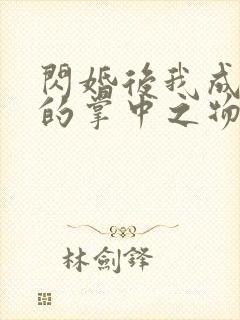 閃婚後我成
的掌中之物
林劍鋒